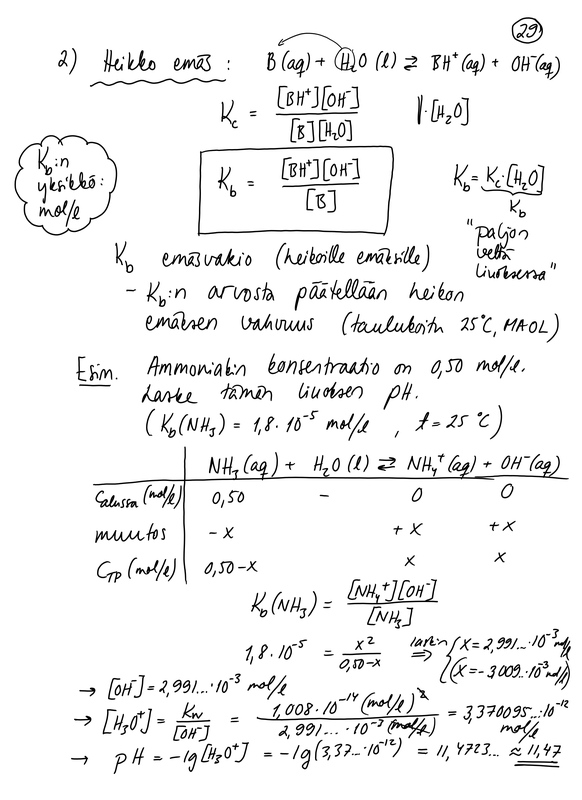 29
2) Heikko emäs : B(aq) + H₂O (l) ⇄ BH⁺(aq) + OH⁻(aq)
K_c = [BH⁺][OH⁻] / [B][H₂O] |·[H₂O]
K_b:n yksikkö: mol/l
K_b = [BH⁺][OH⁻] / [B]
K_b = K_c·[H₂O]
K_b
"paljon vettä liuoksessa"
K_b emäsvakio (heikoille emäksille)
- K_b:n arvosta päätellään heikon
emäksen vahvuus (taulukoitu 25°C, MAOL)
Esim. Ammoniakin konsentraatio on 0,50 mol/l.
Laske tämän liuoksen pH.
(K_b(NH₃) = 1,8·10⁻⁵ mol/l , t = 25 °C)
NH₃(aq) + H₂O(l) ⇄ NH₄⁺(aq) + OH⁻(aq)
c_alussa (mol/l) 0,50 - 0 0
muutos -x +x +x
c_TP (mol/l) 0,50-x x x
K_b(NH₃) = [NH₄⁺][OH⁻] / [NH₃]
1,8·10⁻⁵ = x² / 0,50-x laskin ⇒ { x = 2,991...·10⁻³ mol/l
(x = -3,009...·10⁻³ mol/l)
→ [OH⁻] = 2,991...·10⁻³ mol/l
→ [H₃O⁺] = K_w / [OH⁻] = 1,008·10⁻¹⁴ (mol/l)² / 2,991...·10⁻³ (mol/l) = 3,370095...·10⁻¹² mol/l
→ pH = -lg[H₃O⁺] = -lg(3,37...·10⁻¹²) = 11,4723... ≈ 11,47